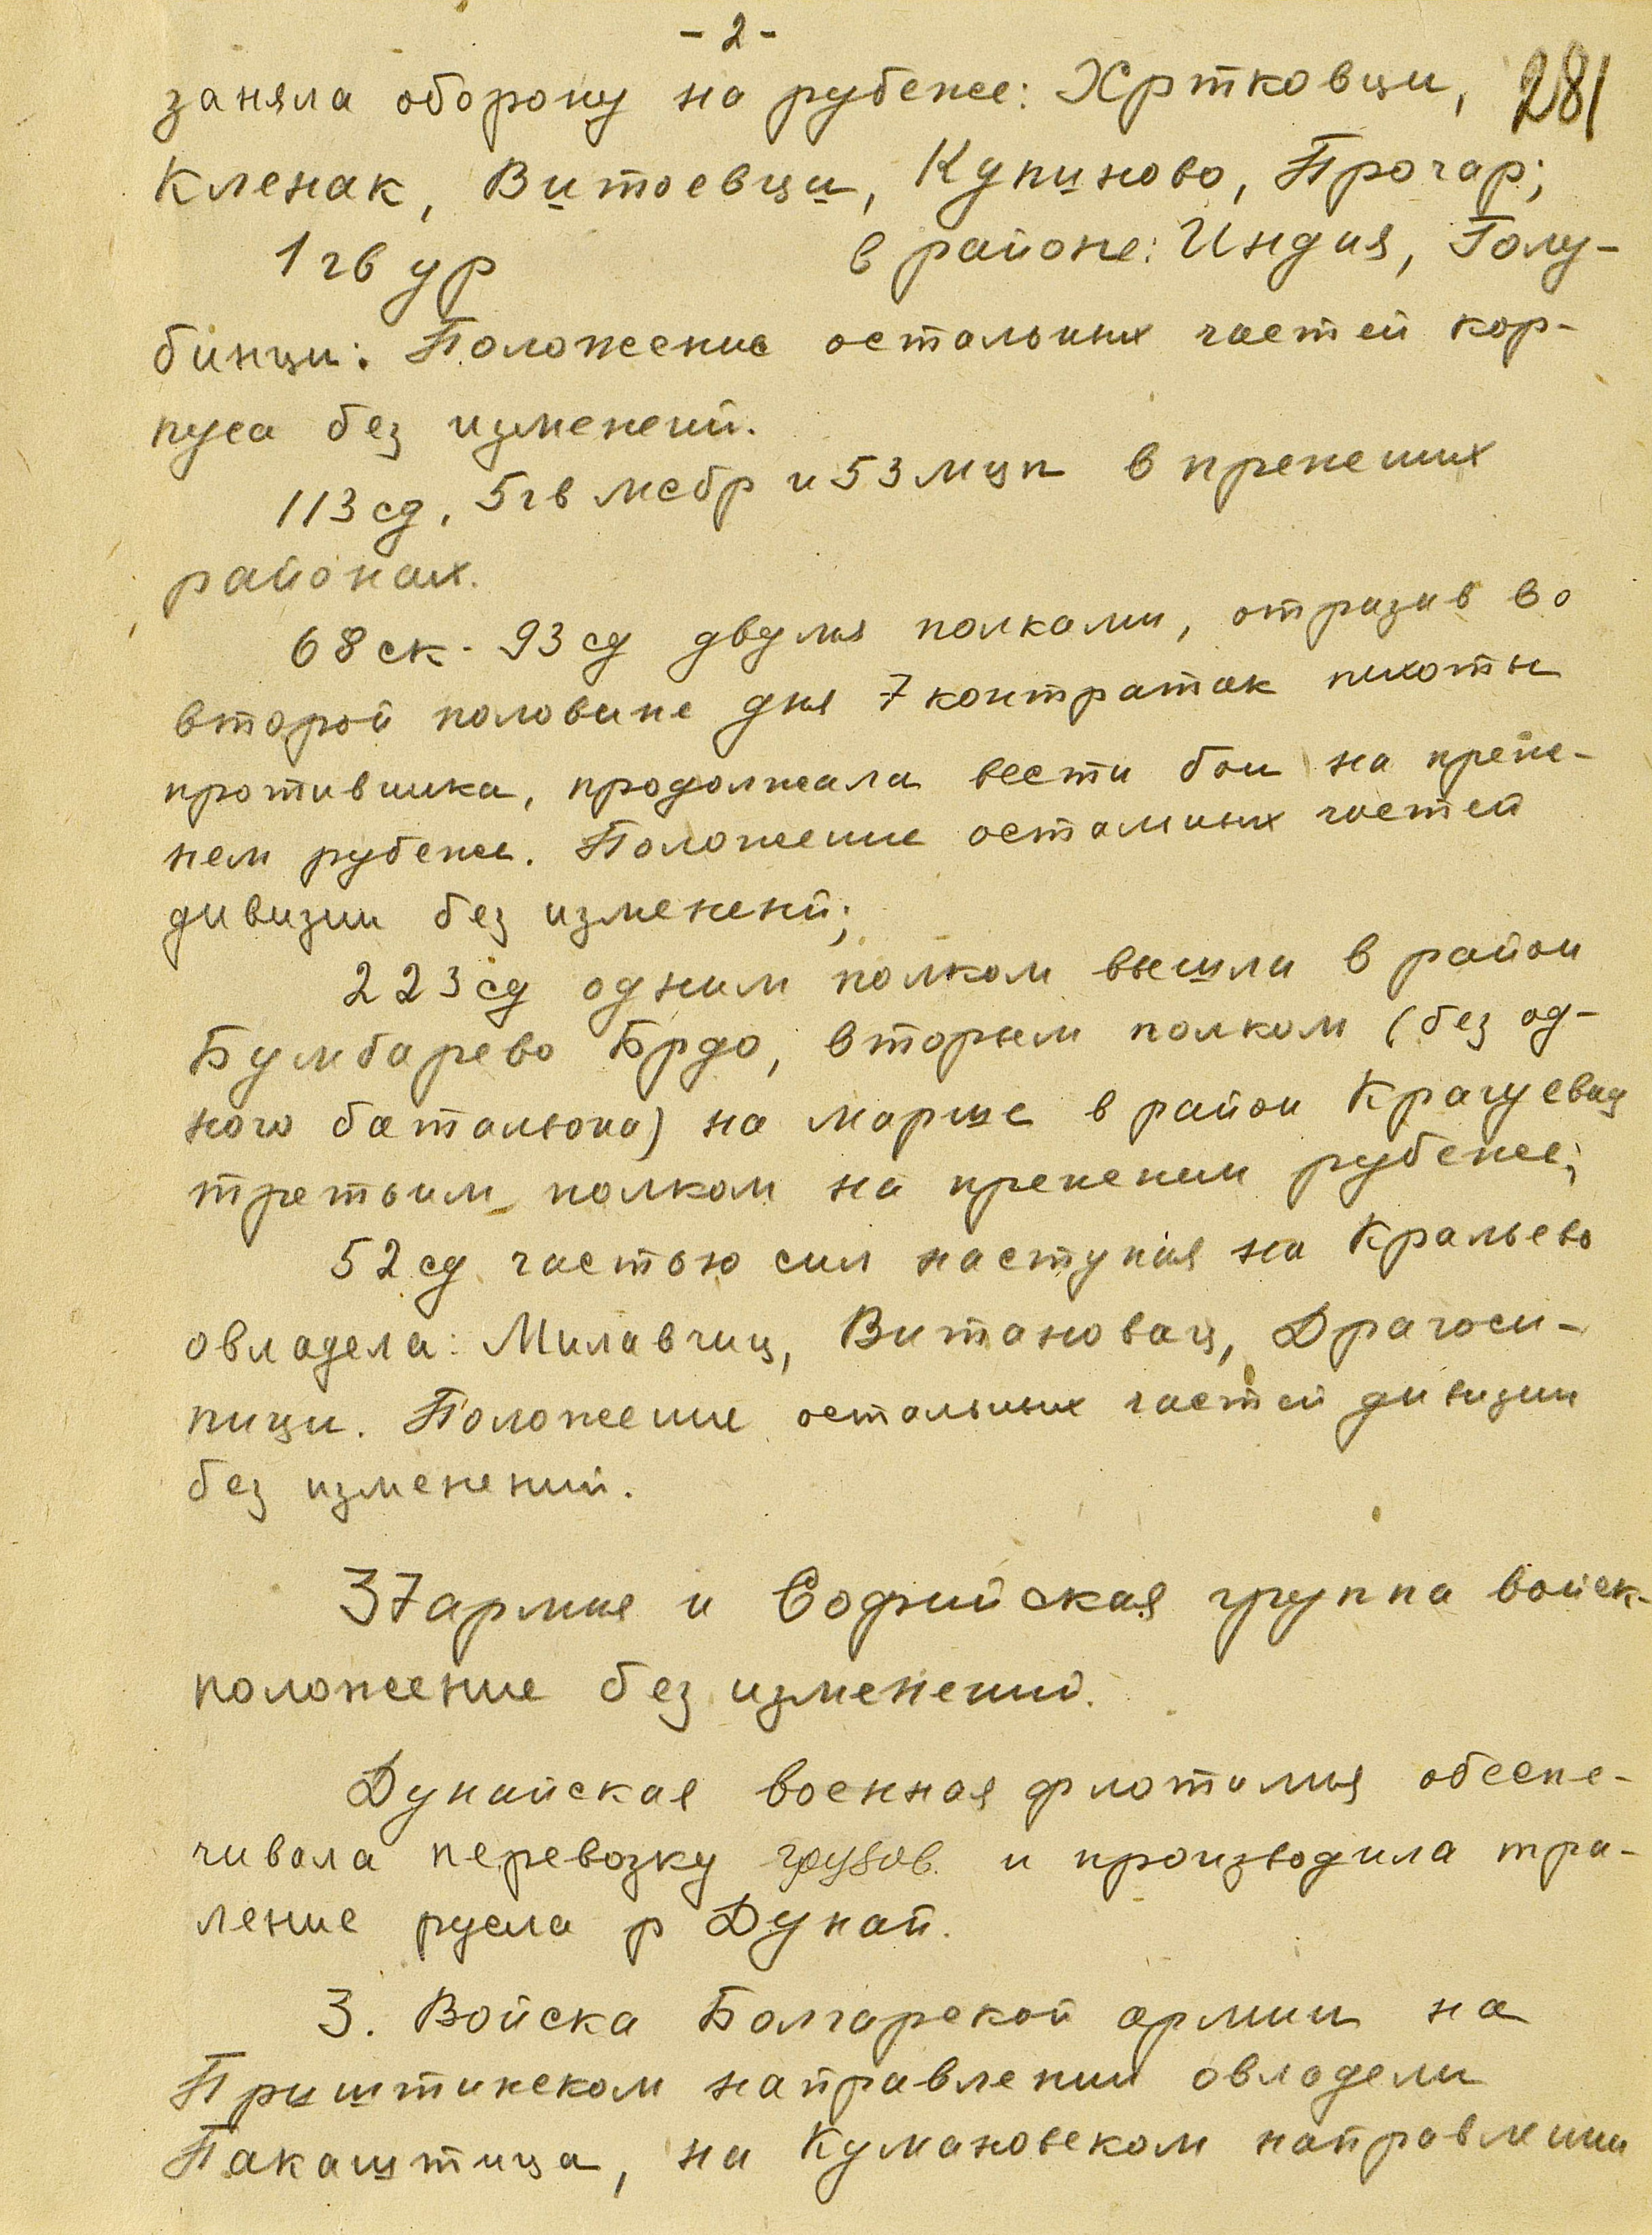 - 2 -
281
заняла оборону на рубеже: Хртковци,
Кленак, Витоевци, Купиново, Прогар;
1 гв ур в районе: Индия, Голу-
бинци. Положение остальных частей кор-
пуса без изменений.
113 сд, 5 гв мсбр и 53 мцп в прежних
районах.
68 ск - 93 сд двумя полками, отразив во
второй половине дня 7 контратак пехоты
противника, продолжала вести бои на преж-
нем рубеже. Положение остальных частей
дивизии без изменений;
223 сд одним полком вышли в район
Бумбарево Брдо, вторым полком (без од-
ного батальона) на марше в район Крагуевац
третьим полком на прежнем рубеже;
52 сд частью сил наступая на Кральево
овладела: Милавчиц, Витановац, Драгоси-
ници. Положение остальных частей дивизии
без изменений.
37 армия и Софийская группа войск -
положение без изменений.
Дунайская военная флотилия обеспе-
чивала перевозку грузов и производила тра-
ление русла р Дунай.
3. Войска Болгарской армии на
Приштинском направлении овладели
Пакаштица, на Кумановском направлении